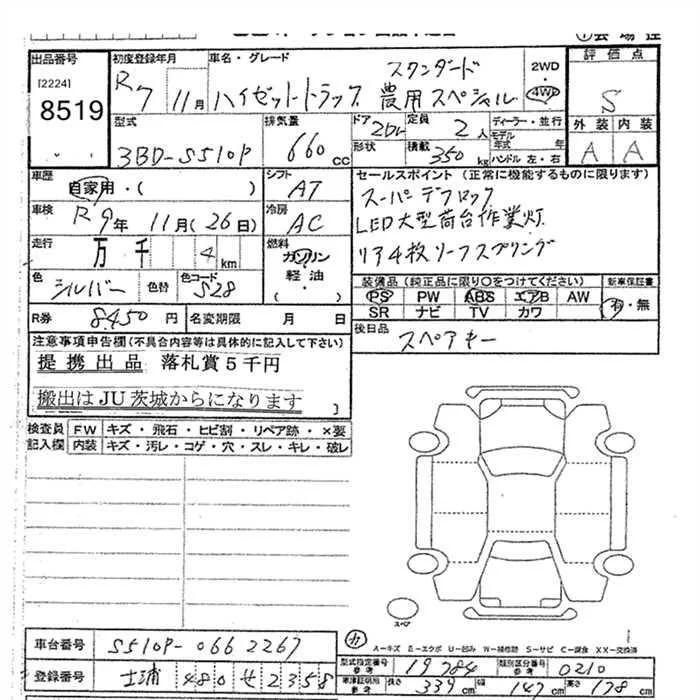 出品番号 初度登録年月 車名・グレード 評価点
[2224] R7 11月 スタンダード 2WD・
8519 ハイゼットトラック 農用スペシャル 4WD S
型式 排気量 ドア 2Dr 定員 2人 ディーラー・並行 外装 内装
3BD-S510P 660cc 形状 積載 350kg モデル年式 年 A A
ハンドル 左・右
車歴 シフト セールスポイント(正常に機能するものに限ります)
自家用・( ) AT スーパーデフロック
車検 R9年 11月(26日) 冷房 AC LED大型荷台作業灯
走行 万 千 4km 燃料 ガソリン リア4枚リーフスプリング
色 シルバー 色替 色コード S28 軽油・( )
装備品(純正品に限り○をつけてください) 新車保証書
PS PW ABS エアB AW 有・無
SR ナビ TV カワ
R券 8450円 名変期限 月 日 後日品 スペアキー
注意事項申告欄(不具合内容等は具体的に記入して下さい)
提携出品 落札賞5千円
搬出はJU茨城からになります
検査員 FW キズ・飛石・ヒビ割・リペア跡・×要
記入欄 内装 キズ・汚レ・コゲ・穴・スレ・キレ・破レ
スペア
車台番号 S510P-0662267
A-キズ E-エクボ U-凹み W-補修跡 S-サビ C-腐食 XX-交換済
型式指定番号 参考 19784 類別区分番号 参考 0210
登録番号 土浦 480せ2358
車検証明用 参考 長さ 339cm 幅 147cm 高さ 178cm